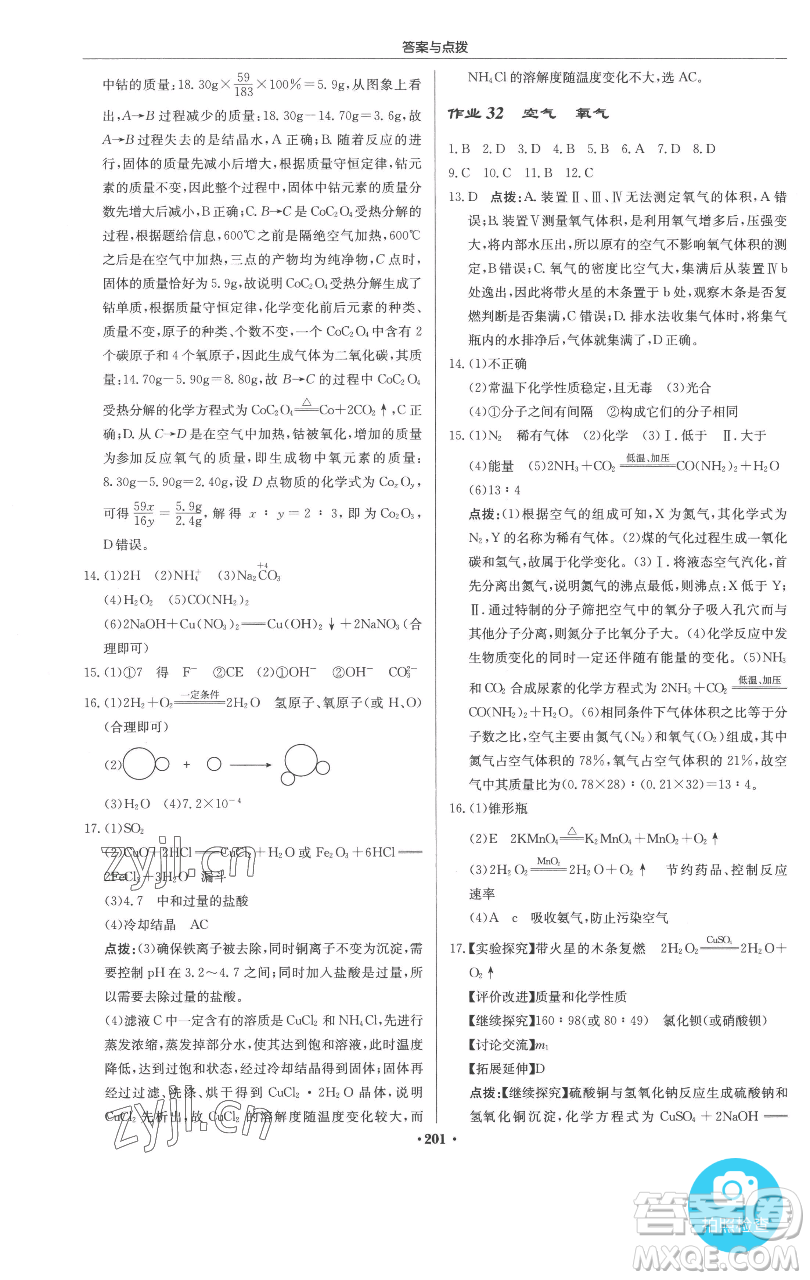 答案与点拨
中钴的质量:18.30g×59/183×100%=5.9g,从图象上看
出,A→B 过程减少的质量:18.30g-14.70g=3.6g,故
A→B 过程失去的是结晶水,A 正确;B. 随着反应的进
行,固体的质量逐渐减小,根据质量守恒定律,钴元
素的质量不变,因此整个过程中,固体中钴元素的质量分
数先增大后减小,B 正确;C. B→C 是 CoC₂O₄ 受热分解的
过程,根据题给信息,600℃之前是隔绝空气加热,600℃
之前,三个阶段的产物均为纯净物,C 点时,
固体的质量恰好为 5.9g,故说明 CoC₂O₄ 受热分解生成了
钴单质,根据质量守恒定律,化学变化前后元素的种类、
质量不变,原子的种类、个数不变,一个 CoC₂O₄ 中含有 2
个碳原子和 4 个氧原子,因此生成气体为二氧化碳,其质
量:14.70g-5.90g=8.80g,故 B→C 的过程中 CoC₂O₄
受热分解的化学方程式为 CoC₂O₄ =△= Co+2CO₂↑,C 正
确;D. 从 C→D 是在空气中加热,钴被氧化,增大的质量
为参加反应氧气的质量,即生成的钴的氧化物中氧元素的质量:
8.30g-5.90g=2.40g,设 D 点物质的化学式为 CoₓOᵧ,
可得 59x/16y=5.9g/2.4g,解得 x∶y=2∶3,即为 Co₂O₃,
D 错误。
14. (1)2H (2)NH₄⁺ (3)Na₂C(+4)O₃
(4)H₂O₂ (5)CO(NH₂)₂
(6)2NaOH+Cu(NO₃)₂══Cu(OH)₂↓+2NaNO₃(合
理即可)
15. (1)①7 得 F⁻ ②CE (2)①OH⁻ ②OH⁻ CO₃²⁻
16. (1)2H₂+O₂ =一定条件= 2H₂O 氢原子、氧原子(或 H、O)
(合理即可)
(2) + →
(3)H₂O (4)7.2×10⁻⁴
17. (1)SO₂
(2)CuO+2HCl══CuCl₂+H₂O 或 Fe₂O₃+6HCl══
2FeCl₃+3H₂O 漏斗
(3)4.7 中和过量的盐酸
(4)冷却结晶 AC
点拨:(3)确保铁离子被去除,同时铜离子不变为沉淀,需
要控制 pH 在 3.2~4.7 之间;同时加入盐酸是过量的,所
以需要去除过量的盐酸。
(4)滤液 C 中一定含有的溶质是 CuCl₂ 和 NH₄Cl,先进行
蒸发浓缩,蒸发掉部分水,得到较高温的饱和溶液,然后温度
降低,达到过饱和状态,经过冷却结晶得到固体;固体再
经过过滤、洗涤、烘干得到 CuCl₂·2H₂O 晶体,故
CuCl₂ 先析出,故 CuCl₂ 的溶解度随温度变化较大,而
NH₄Cl 的溶解度随温度变化不大,选 AC。
作业 32 空气 氧气
1. B 2. D 3. D 4. D 5. B 6. A 7. D 8. D
9. C 10. C 11. B 12. C
13. D 点拨:A. 装置Ⅱ、Ⅲ、Ⅳ无法测定氧气的体积,A 错
误;B. 装置Ⅴ测量氧气体积,是利用氧气多后,压强变
大,将内部水压出,所以原有的空气不影响氧气体积的测
定,B 错误;C. 氧气的密度比空气大,集满后从装置Ⅳb
处逸出,因此,将带火星的木条置于 b 处,观察木条是否复燃
判断是否集满,C 错误;D. 排水法收集气体时,将集气
瓶内的水排净后,气体就集满了,D 正确。
14. (1)不正确
(2)常温下化学性质稳定,且无毒 (3)光合
(4)①分子之间有间隔 ②构成它们的分子不同
15. (1)N₂ 稀有气体 (2)化学 (3)Ⅰ. 低于 Ⅱ. 大于
(4)能量 (5)2NH₃+CO₂ =低温、加压= CO(NH₂)₂+H₂O
(6)13∶4
点拨:(1)根据空气的组成可知,X 为氮气,化学式为
N₂,Y 的名称为稀有气体。(2)煤的气化过程生成了一氧化
碳和氢气,故属于化学变化。(3)Ⅰ. 将液态空气汽化,首
先分离出氮气,说明氮气的沸点最低,则沸点:X 低于 Y;
Ⅱ. 通过特制的分子筛把空气中的氧分子吸入孔穴而与
其他分子分离,则氮分子比氧分子大。(4)化学反应中在
发生物质变化的同时一定还伴随有能量的变化。(5)NH₃
和 CO₂ 合成尿素的化学方程式为 2NH₃+CO₂ =低温、加压=
CO(NH₂)₂+H₂O。(6)相同条件下气体体积之比等于分
子数之比,空气主要由氮气(N₂)和氧气(O₂)组成,其中
氮气占空气体积的 78%,氧气占空气体积的 21%,故空
气中其质量比为(0.78×28)∶(0.21×32)=13∶4。
16. (1)锥形瓶
(2)E 2KMnO₄ =△= K₂MnO₄+MnO₂+O₂↑
(3)2H₂O₂ =MnO₂= 2H₂O+O₂↑ 节约药品、控制反应
速率
(4)A c 吸收氨气,防止污染空气
17. 【实验探究】带火星的木条复燃 2H₂O₂ =CuSO₄= 2H₂O+
O₂↑
【评价改进】质量和化学性质
【继续探究】160∶98(或 80∶49) 氯化钡(或硝酸钡)
【讨论交流】m₁
【拓展延伸】D
点拨:【继续探究】硫酸铜与氢氧化钠反应生成硫酸钠和
氢氧化铜沉淀,化学方程式为 CuSO₄+2NaOH══
·201·
zyjl.cn
zyjl.cn
拍照检查
答案圈
MXQE.COM